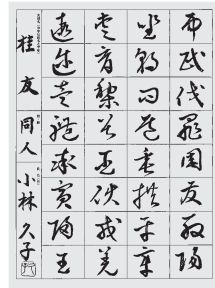 弔民伐罪周發殷湯
坐朝問道垂拱平章
愛育黎首臣伏戎羌
遐邇壹體率賓歸王
桂友 同人 小林久子